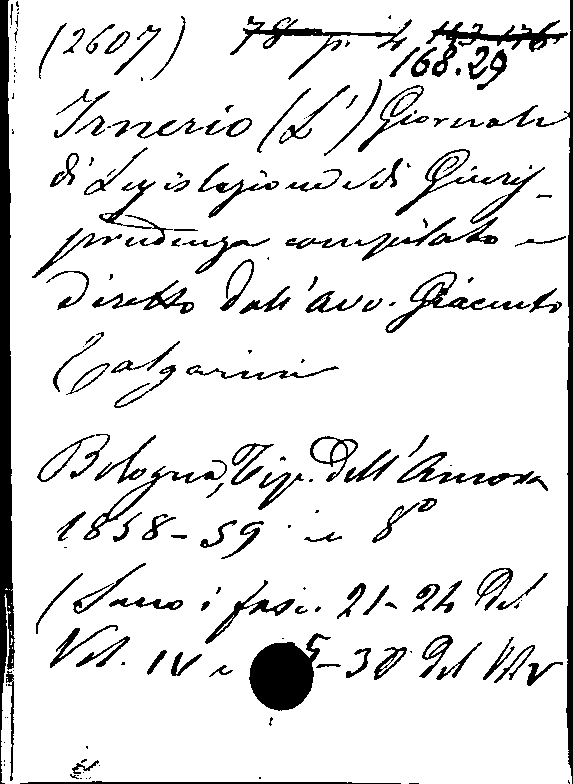 (2607) 78 p. 4 143.176.
168.29
Irnerio (L') Giornale
di Legislazione e di Giuris-
prudenza compilato e
diretto dall'Avv. Giacinto
Calgarini
Bologna, Tip. dell'Ancora
1858-59 in 8°
(Sono i fasc. 21-24 del
Vol. IV e 5-30 del Vol. V